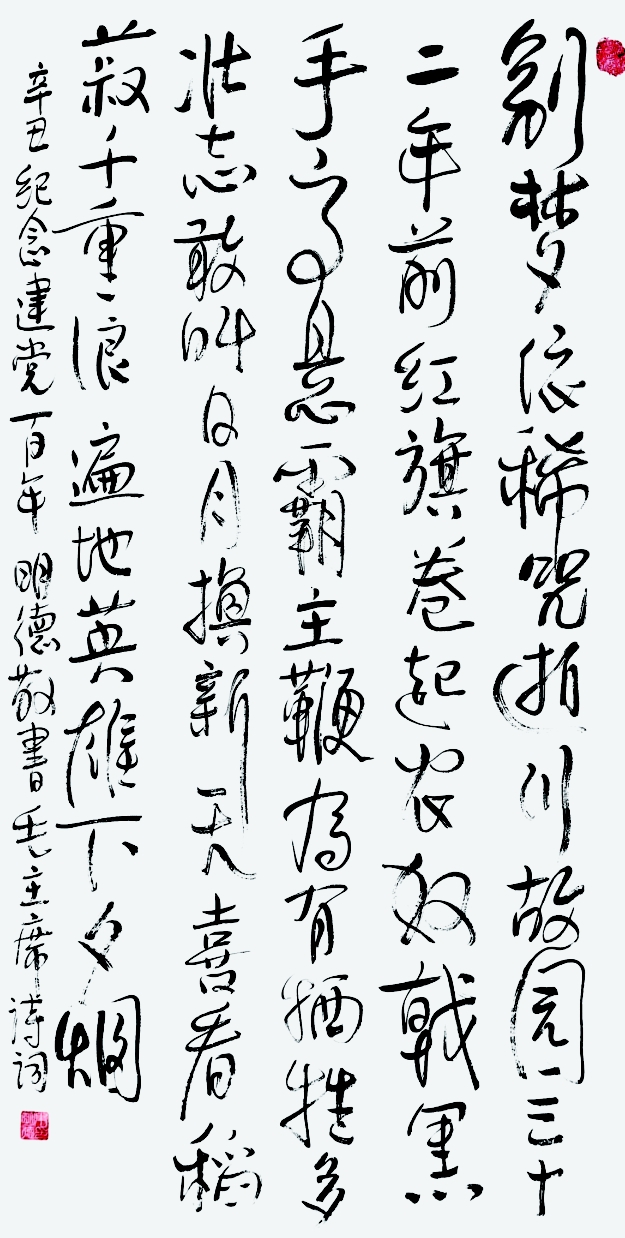 别梦依稀咒逝川故园三十
二年前红旗卷起农奴戟黑
手高悬霸主鞭為有牺牲多
壮志敢叫日月换新天喜看稻
菽千重浪遍地英雄下夕烟
辛丑纪念建党百年 明德敬書毛主席诗词